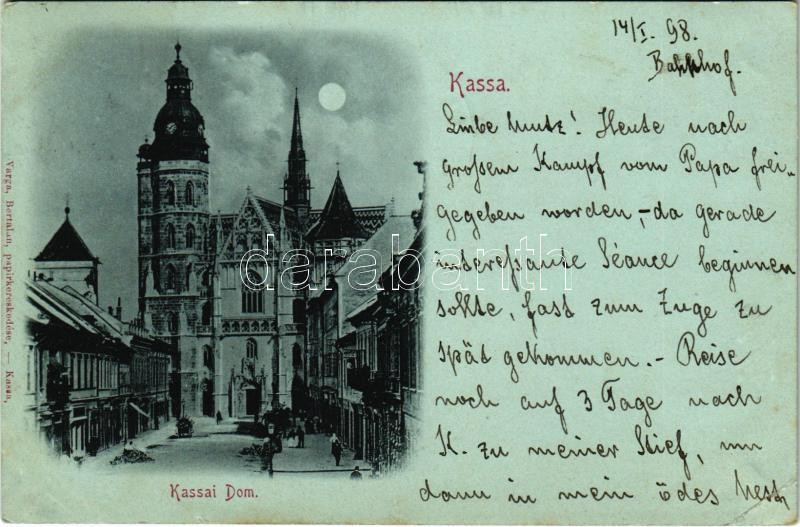 14/I. 98.
Bahnhof.
Kassa.
Liebe Mutz! Heute nach
großem Kampf vom Papa frei-
gegeben worden, - da gerade
interessante Séance beginnen
sollte, fast zum Zuge zu
spät gekommen. - Reise
noch auf 3 Tage nach
K. zu meiner Stief, um
dann in mein ödes Nest
Kassai Dom.
Varga, Bertalan, papirkereskedése, — Kassa,
darabanth